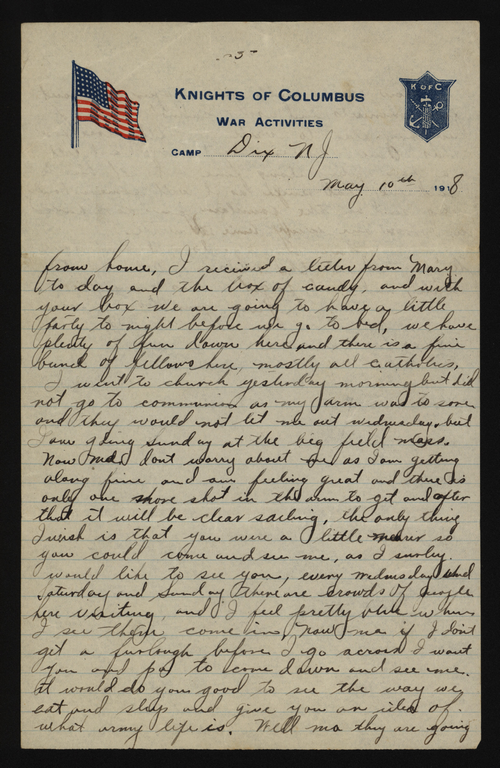 -3-
K OF C
KNIGHTS OF COLUMBUS
WAR ACTIVITIES
CAMP Dix N J
May 10th 1918
from home, I recieved a letter from Mary
to day and the box of candy, and with
your box we are going to have a little
party to night before we go to bed, we have
plenty of fun down here and there is a fine
bunch of fellows here, mostly all catholics,
I went to church yesterday morning but did
not go to communion as my arm was to sore
and they would not let me out wednesday, but
I am going sunday at the big field mass.
Now ma don't worry about me as I am getting
along fine and am feeling great and there is
only one more shot in the arm to get and after
that it will be clear sailing, the only thing
I wish is that you were a little nearer so
you could come and see me, as I surley
would like to see you, every wednesday and
Saturday and Sunday there are crowds of people
here visiting, and I feel pretty blue when
I see them come in, Now ma if I don't
get a furlough before I go across I want
you and pa to come down and see me.
it would do you good to see the way we
eat and sleep and give you an idea of
what army life is. Well ma they are going